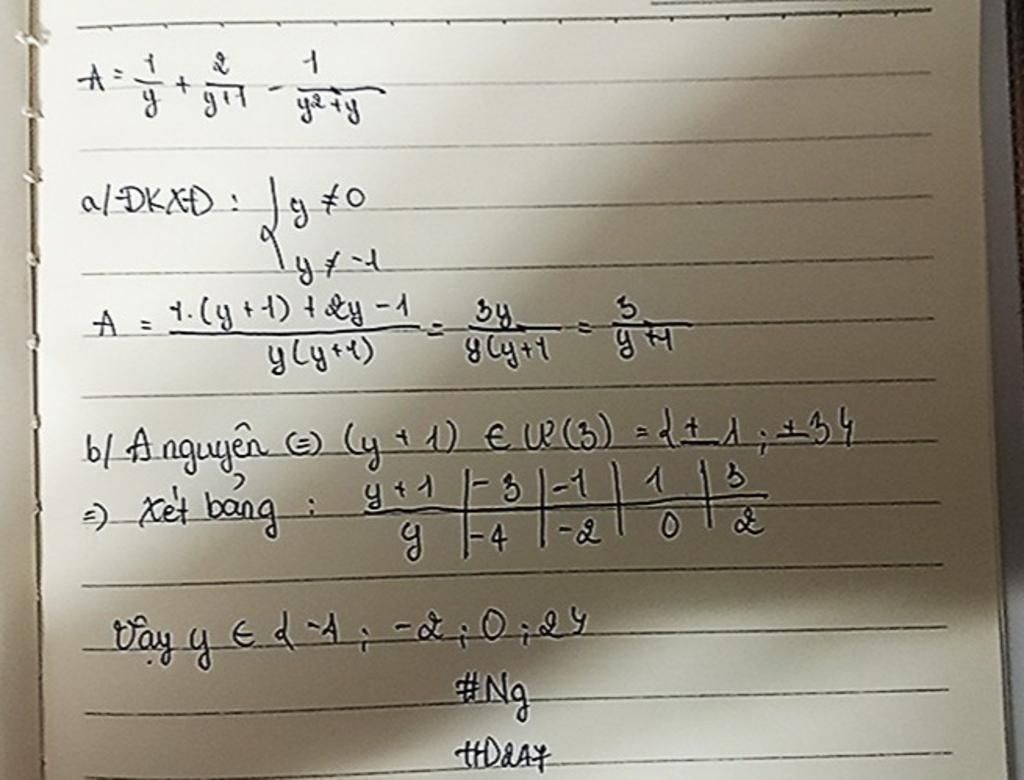 A = 1/y + 2/(y+1) - 1/(y²+y)
a/ ĐKXĐ : { y ≠ 0
y ≠ -1
A = (1.(y+1) + 2y - 1)/(y(y+1)) = 3y/(y(y+1) = 3/(y+1)
b/ A nguyên (=) (y + 1) ∈ Ư(3) = {±1 ; ±3}
=) Xét bảng : y+1 | -3 | -1 | 1 | 3
y | -4 | -2 | 0 | 2
Vậy y ∈ {-4 ; -2 ; 0 ; 2}
#Ng